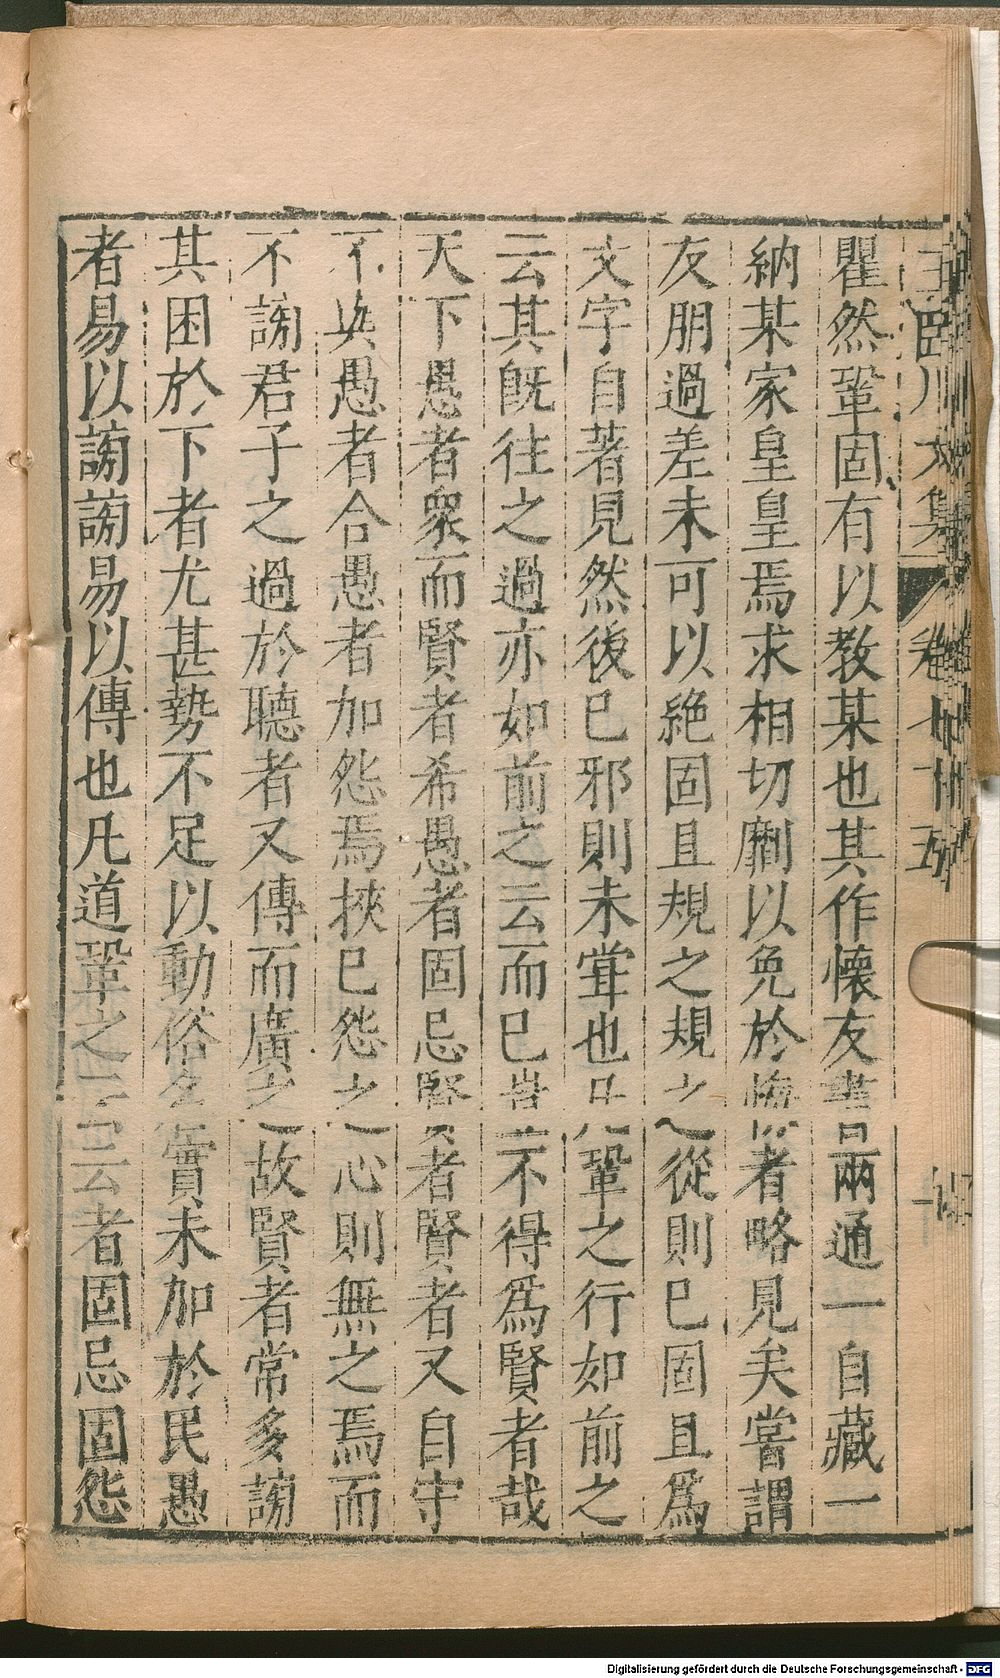 瞿然鞏固有以教某也其作懷友書兩通一自藏一
納某家皇皇焉求相切劘以免於悔者略見矣嘗謂
友朋過差未可以絶固且規之規之從則已固且爲
文字自著見然後已邪則未嘗也凡鞏之行如前之
云其旣往之過亦如前之云而已豈不得爲賢者哉
天下愚者衆而賢者希愚者固忌賢者賢者又自守
不與愚者合愚者加怨焉挾已怨之心則無之焉而
不謗君子之過於聽者又傳而廣之故賢者常多謗
其困於下者尤甚勢不足以動俗名實未加於民愚
者易以謗謗易以傳也凡道鞏之云云者固忌固怨
王臨川文集 卷七十五
Digitalisierung gefördert durch die Deutsche Forschungsgemeinschaft - DFG